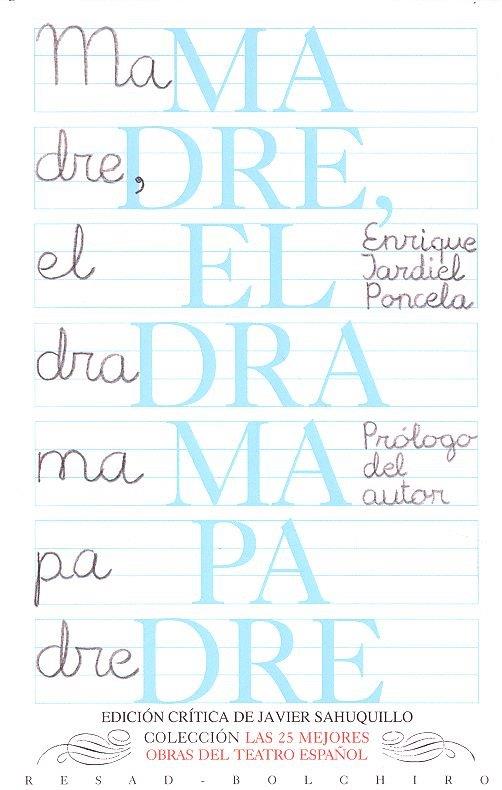 Ma MA
dre, DRE,
el EL Enrique
Jardiel
Poncela
dra DRA
ma MA Prólogo
del
autor
pa PA
dre DRE
EDICIÓN CRÍTICA DE JAVIER SAHUQUILLO
COLECCIÓN LAS 25 MEJORES
OBRAS DEL TEATRO ESPAÑOL
RESAD-BOLCHIRO